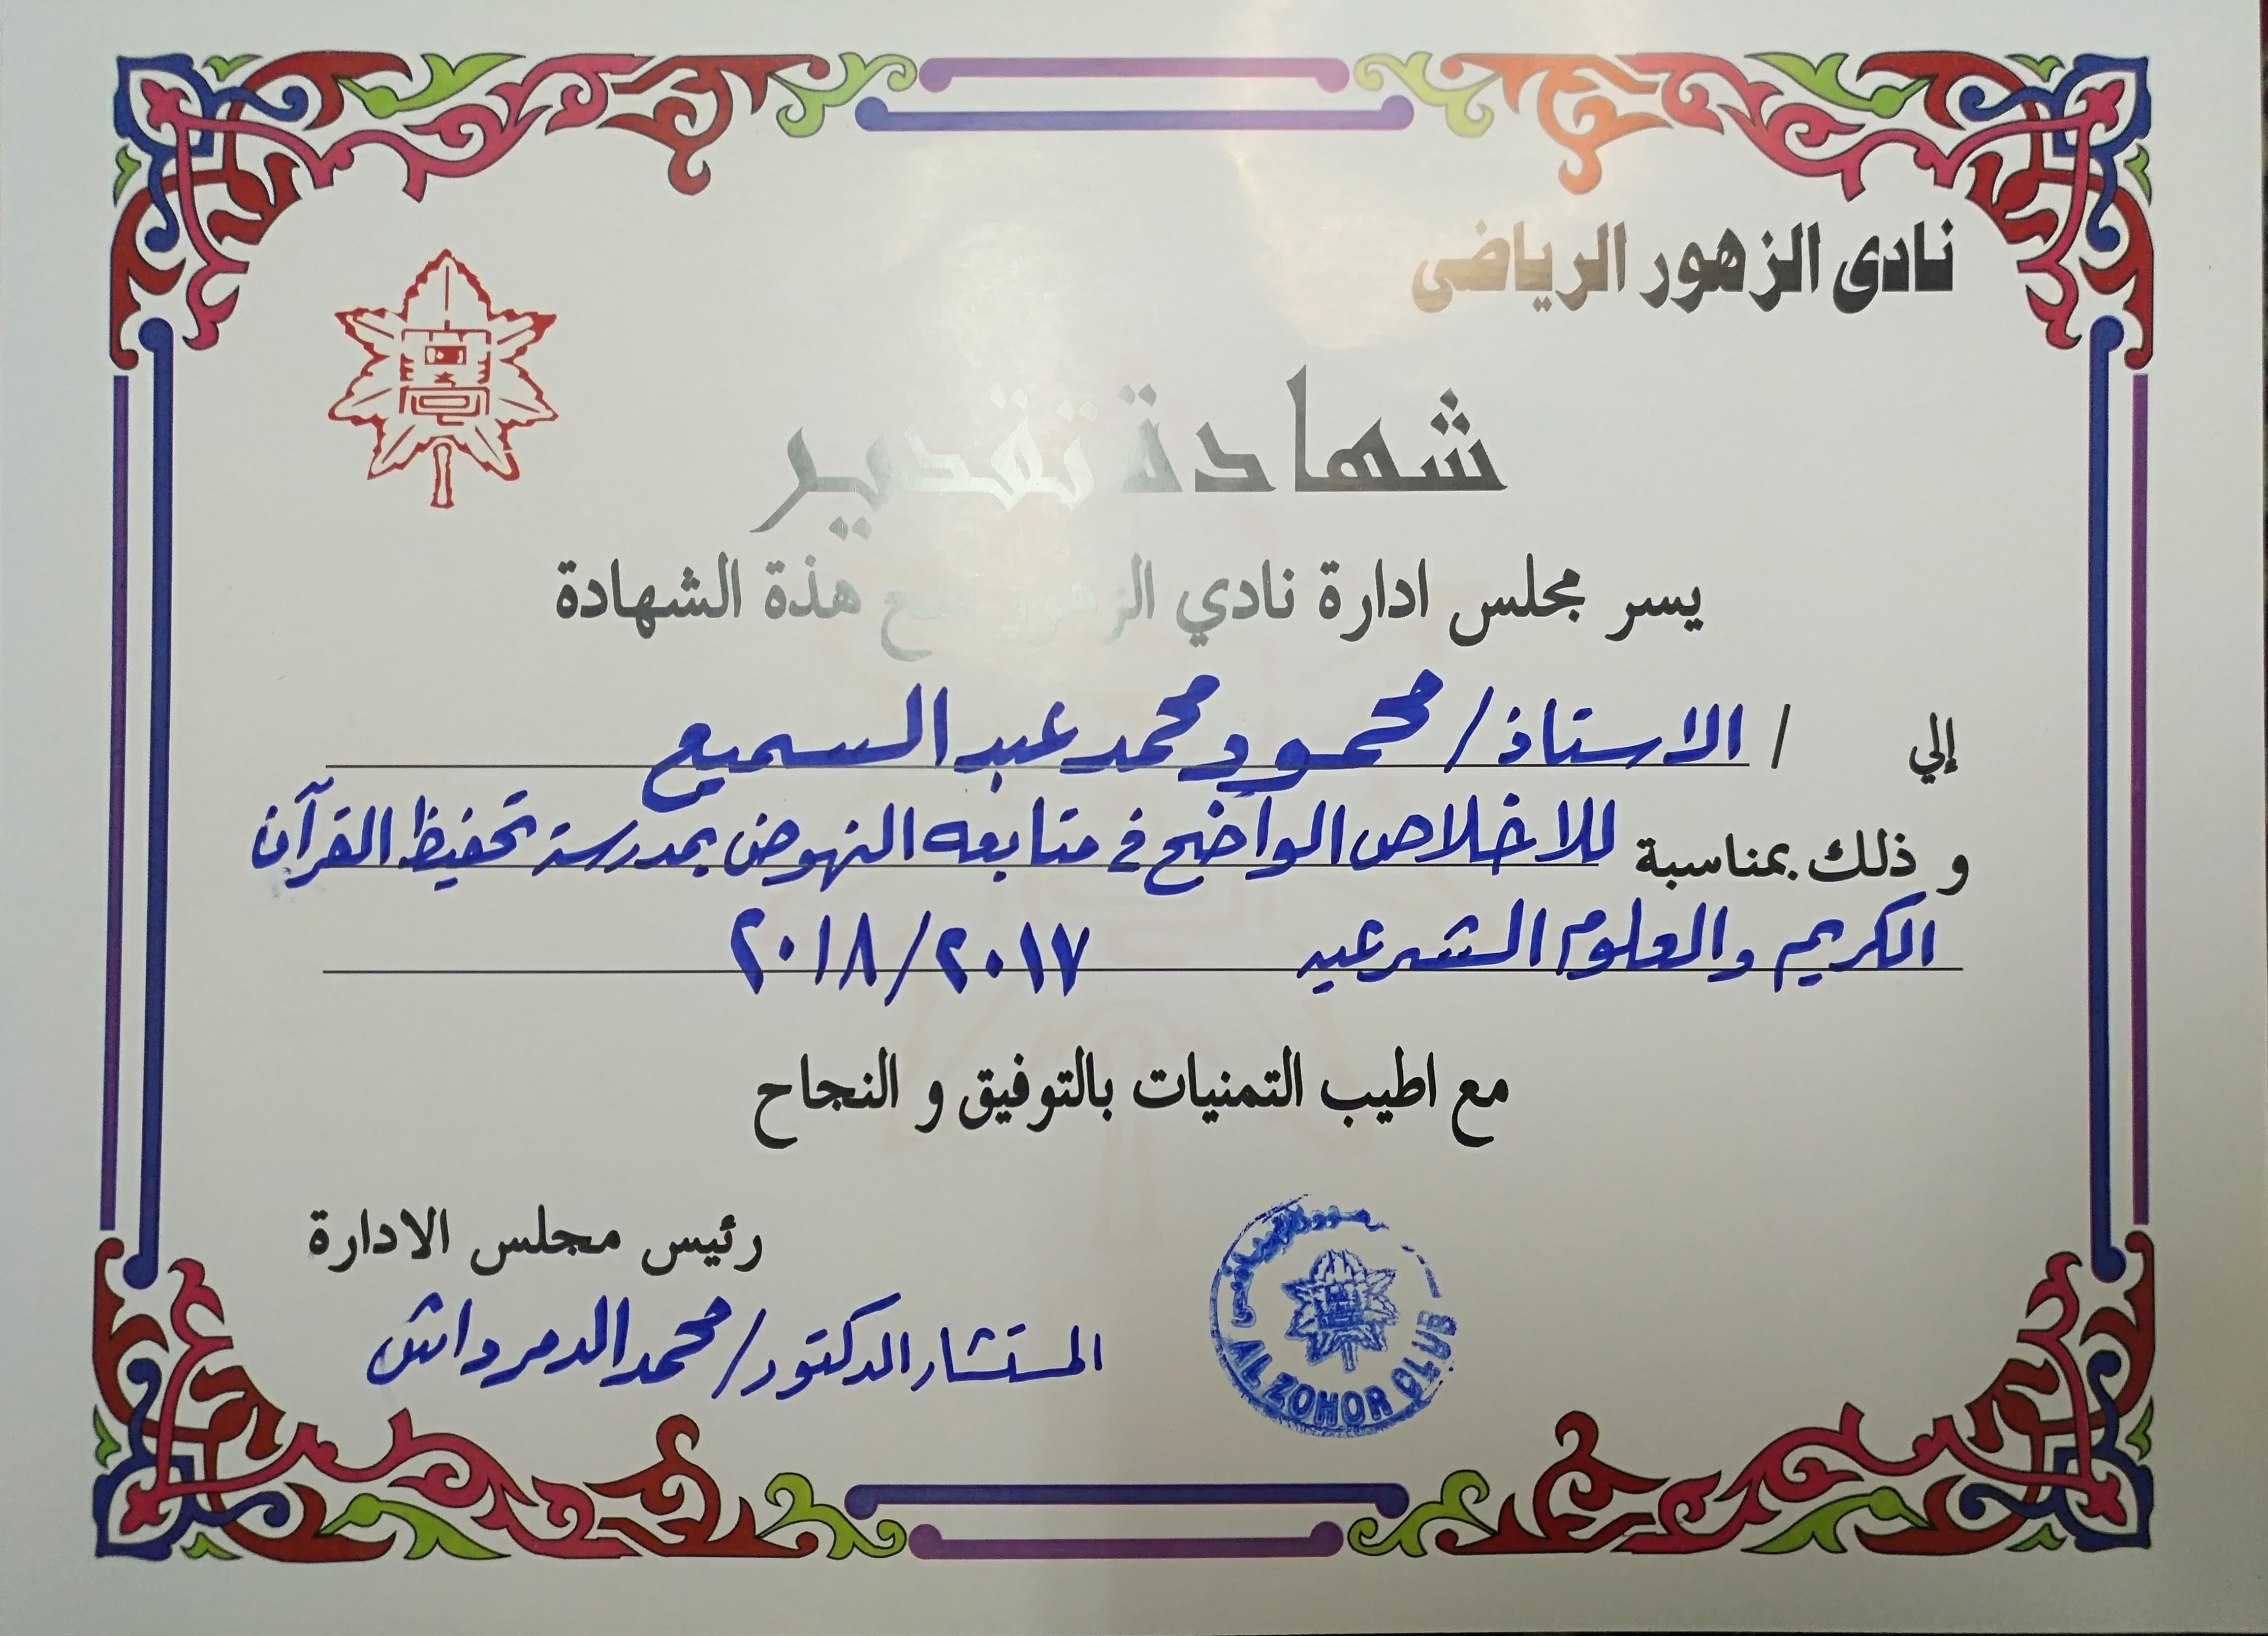 نادى الزهور الرياضى
شهادة تقدير
يسر مجلس ادارة نادي الزهور منح هذة الشهادة
إلي / الاستاذ / محمود محمد عبد السميع
و ذلك بمناسبة للاخلاص الواضح في متابعه النهوض بمدرسة تحفيظ القرآن
الكريم والعلوم الشرعيه ٢٠١٨/٢٠١٧
مع اطيب التمنيات بالتوفيق و النجاح
رئيس مجلس الادارة
المستشار الدكتور / محمد الدمرداش
AL ZOHOR CLUB